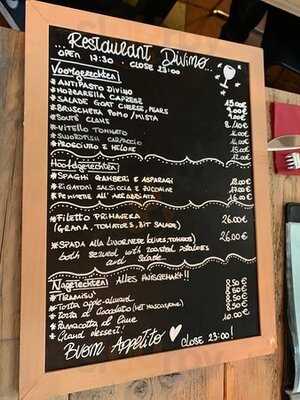 ...Restaurant Divino...
OPEN 17:30 - CLOSE 23:00
Voorgerechten
* ANTIPASTO DIVINO 15.00
* MOZZARELLA CAPRESE
* SALADE GOAT CHEESE, PEARS
* BRUSCHETTA POMO / MISTA
* SOUTÉ CLAMS
* VITELLO TONNATO
* SWORDFISH CARPACCIO
* PROSCIUTTO E MELONE
Hoofdgerechten
* SPAGH GAMBERI E ASPARAGI
* RIGATONI SALSICCIA E ZUCCHINE
* PENNETTE ALL' ARRABBIATA
* FILETTO PRIMAVERA 26.00
(GRANA, TOMATOES, BIT SALAD)
* SPADA ALLA LIVORNESE (OLIVES, TOMATOES) 26.00
both served with roasted potatoes
and Salade
Nagerechten ALLES HUISGEMAKT!!
* TIRAMISÙ 8.50
* Torta apple-almond 8.50
* Torta al Cioccolato (met mascarpone) 8.50
* Pannacotta al lime 8.50
* Grand dessert! 10.00
Buon Appetito CLOSE 23:00!